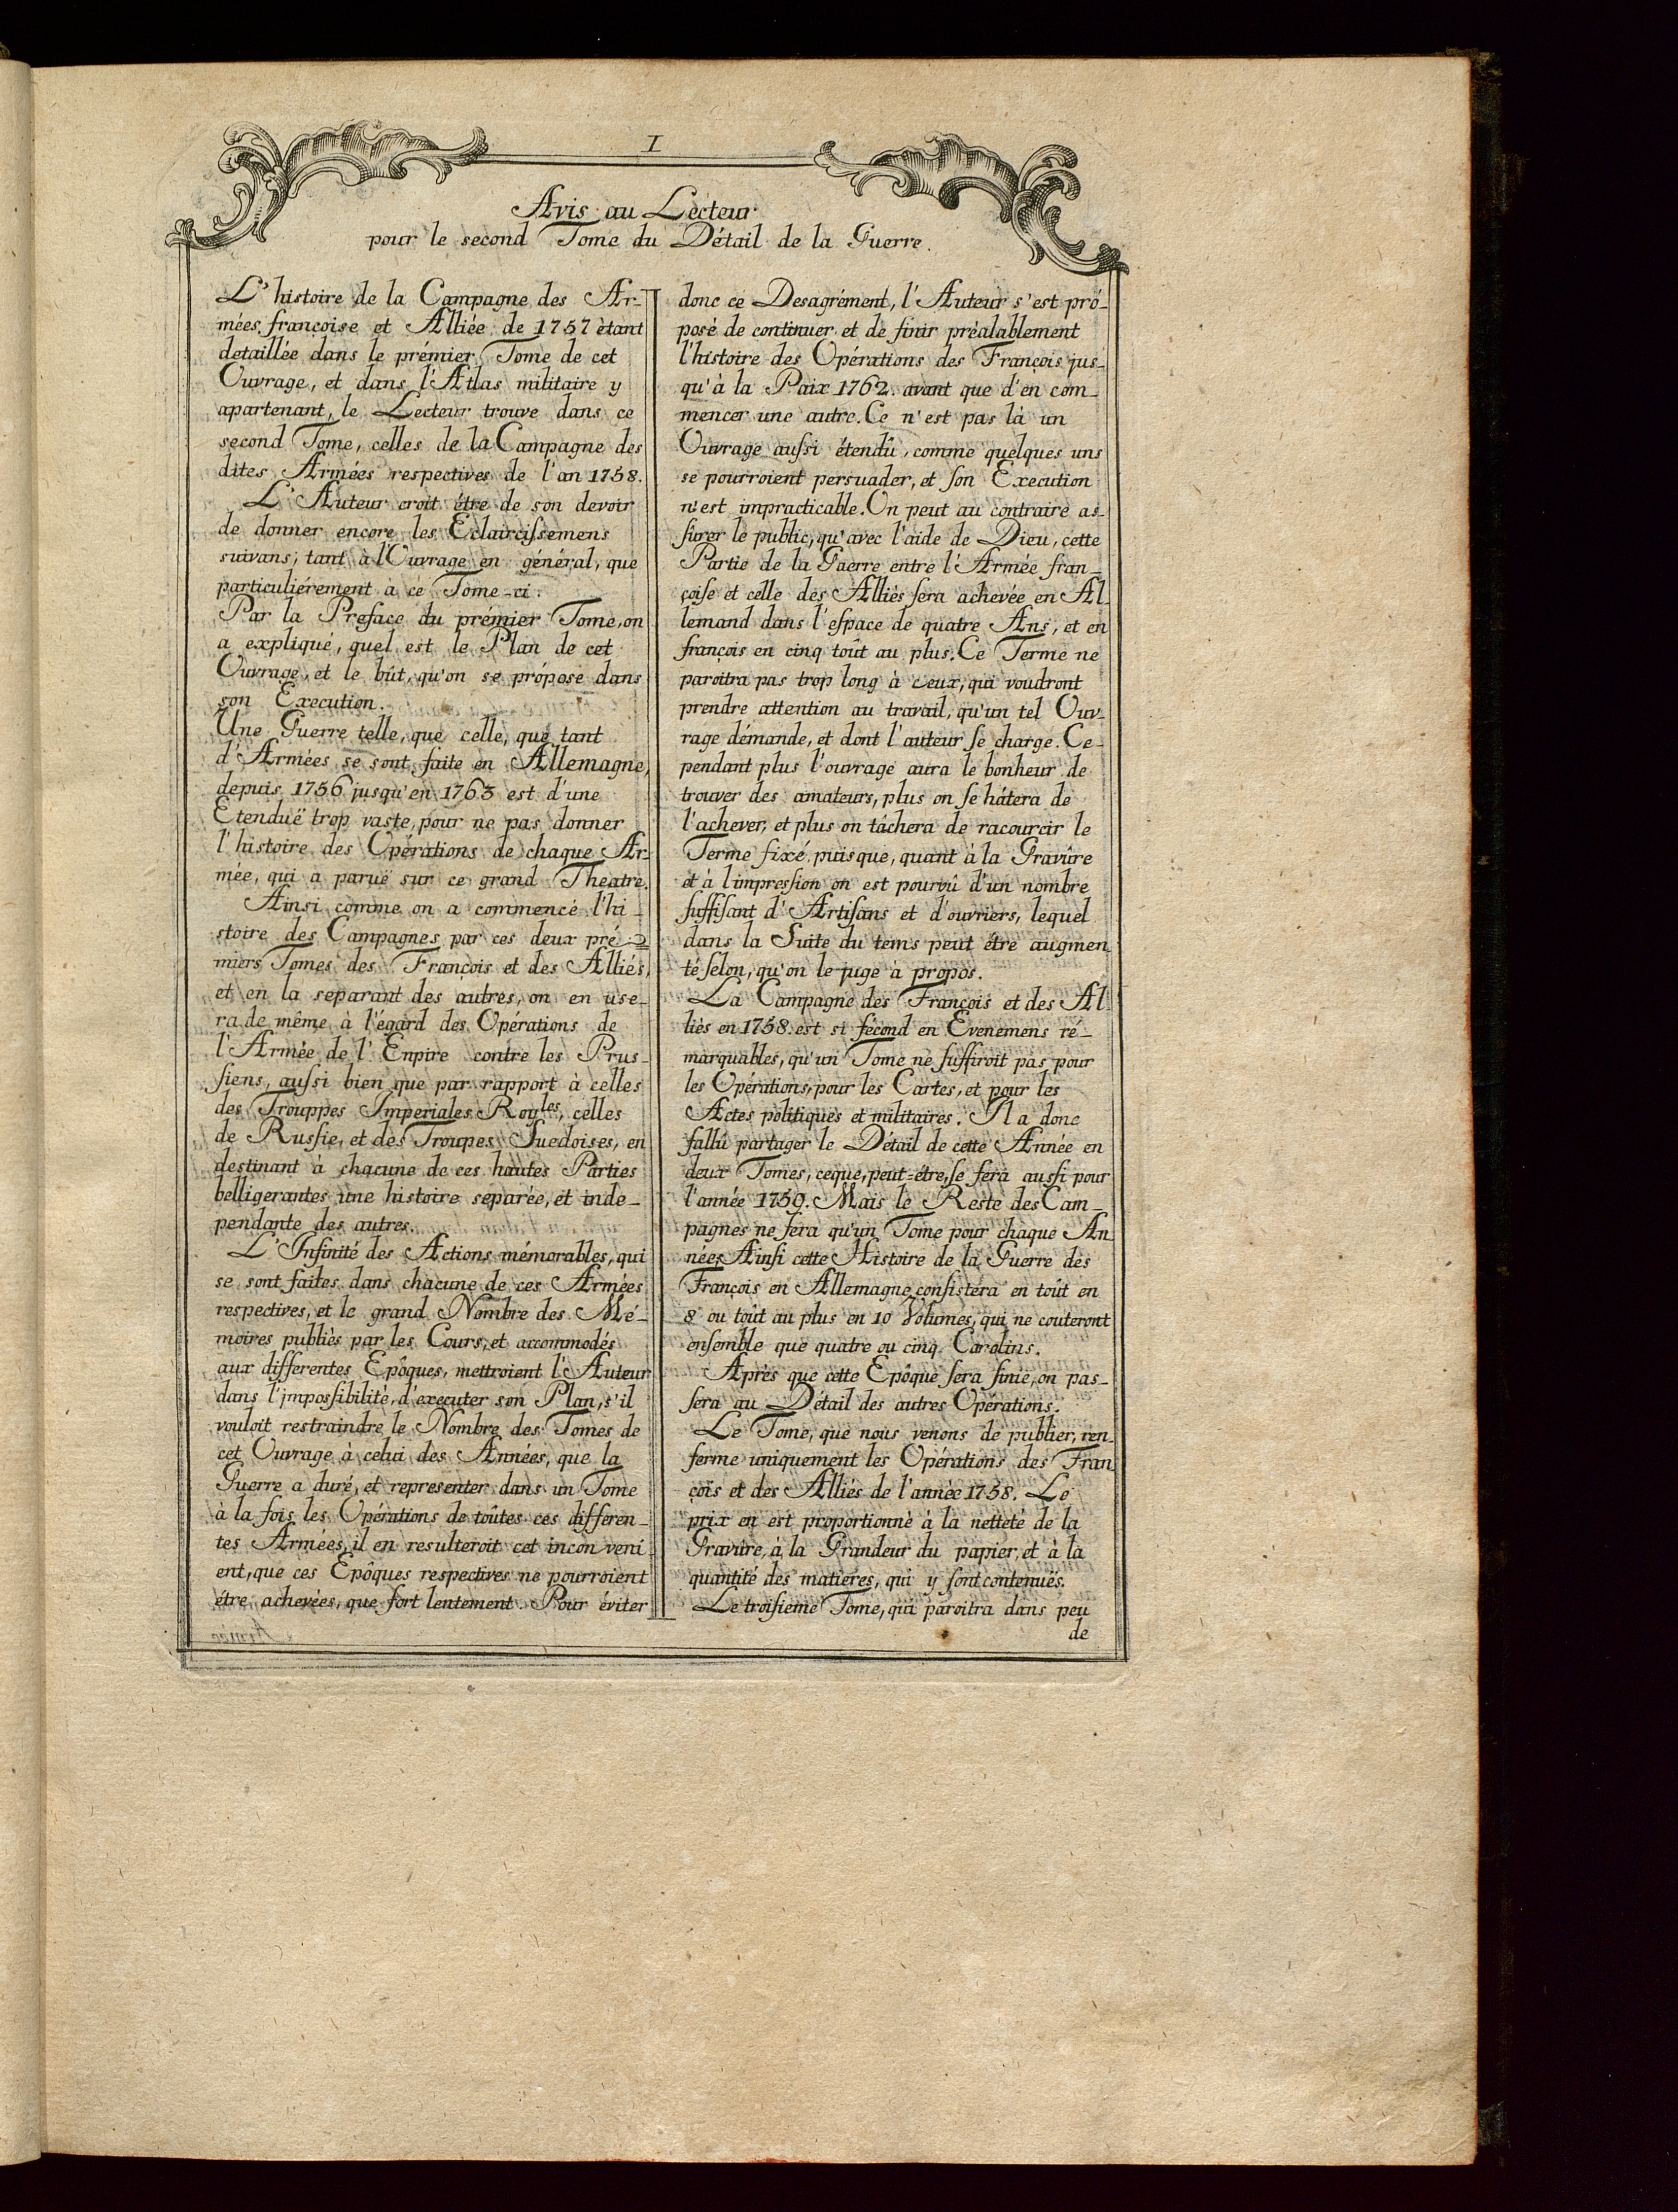 I
Avis au Lecteur
pour le second Tome du Détail de la Guerre.
L'histoire de la Campagne des Ar-
mées françoise et Alliée de 1757 ètant
detaillée dans le prémier Tome de cet
Ouvrage, et dans l'Atlas militaire y
apartenant, le Lecteur trouve dans ce
second Tome, celles de la Campagne des
dites Armées respectives de l'an 1758.
L'Auteur croit étre de son devoir
de donner encore les Eclaircißemens
suivans, tant à l'Ouvrage en général, que
particuliérement à ce Tome-ci.
Par la Preface du prémier Tome, on
a expliqué, quel est le Plan de cet
Ouvrage, et le bût, qu'on se própose dans
son Execution.
Une Guerre telle, que celle, que tant
d'Armées se sont faite en Allemagne,
depuis 1756 jusqu'en 1763 est d'une
Etenduë trop vaste, pour ne pas donner
l'histoire des Opérations de chaque Ar-
mée, qui a paruë sur ce grand Theatre.
Ainsi comme on a commencé l'hi-
stoire des Campagnes par ces deux pré=
miers Tomes des François et des Alliés,
et en la separant des autres, on en use-
ra de même à l'égard des Opérations de
l'Armée de l'Enpire contre les Prus-
ſiens, außi bien que par rapport à celles
des Trouppes Imperiales Royles, celles
de Rußie, et des Troupes Suedoises, en
destinant à chacune de ces hautes Parties
belligerantes une histoire separée, et inde-
pendante des autres.
L'Infinité des Actions mémorables, qui
se sont faites dans chacune de ces Armées
respectives, et le grand Nombre des Mé-
moires publiès par les Cours, et accommodés
aux differentes Epôques, mettroient l'Auteur
dans l'impoßibilité, d'executer son Plan, s'il
vouloit restraindre le Nombre des Tomes de
cet Ouvrage à celui des Années, que la
Guerre a duré, et representer dans un Tome
à la fois les Opérations de toûtes ces differen-
tes Armées, il en resulteroit cet inconveni-
ent, que ces Epôques respectives ne pourroient
étre achevées, que fort lentement. Pour éviter
donc ce Desagrément, l'Auteur s'est pró-
posé de continuer et de finir préalablement
l'histoire des Opérations des François jus-
qu'à la Paix 1762. avant que d'en com-
mencer une autre. Ce n'est pas là un
Ouvrage außi étendû, comme quelques uns
se pourroient persuader, et ſon Execution
n'est impracticable. On peut au contraire as-
ſurer le public, qu'avec l'aide de Dieu, cette
Partie de la Guerre entre l'Armée fran-
çoiſe et celle des Alliés ſera achevée en Al-
lemand dans l'eſpace de quatre Ans, et en
françois en cinq toût au plus. Ce Terme ne
paroitra pas trop long à ceux, qui voudront
prendre attention au travail, qu'un tel Ouv-
rage démande, et dont l'auteur ſe charge. Ce-
pendant plus l'ouvrage aura le bonheur de
trouver des amateurs, plus on ſe hâtera de
l'achever, et plus on tâchera de racourcir le
Terme fixé, puisque, quant à la Gravûre
et à l'impreßion on est pourvû d'un nombre
ſuffiſant d'Artiſans et d'ouvriers, lequel
dans la Suite du tems peut étre augmen
té ſelon, qu'on le juge à propos.
La Campagne des François et des Al-
liès en 1758. est si fécond en Evenemens ré-
marquables, qu'un Tome ne ſuffiroit pas pour
les Opérations, pour les Cartes, et pour les
Actes politiques et militaires. Il a donc
fallû partager le Détail de cette Année en
deux Tomes, ceque, peut=étre, ſe ſera außi pour
l'année 1759. Mais le Reste des Cam-
pagnes ne ſera qu'un Tome pour chaque An
née, Ainſi cette Histoire de la Guerre des
François en Allemagne conſistera en toût en
8 ou toût au plus en 10 Volumes, qui ne couteront
enſemble que quatre ou cinq Carolins.
Après que cette Epôque ſera finie, on pas-
ſera au Détail des autres Opérations.
Le Tome, que nous venons de publier, ren-
ferme uniquement les Opérations des Fran
çois et des Alliés de l'année 1758. Le
prix en est proportionné à la netteté de la
Gravûre, à la Grandeur du papier, et à la
quantité des matiéres, qui y ſont contenuës.
Le troiſieme Tome, qui paroitra dans peu
de